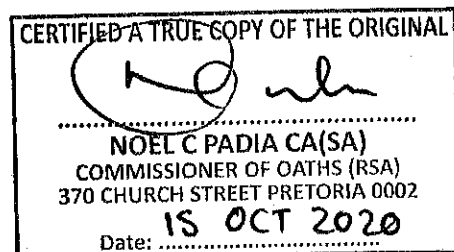 CERTIFIED A TRUE COPY OF THE ORIGINAL
NOEL C PADIA CA(SA)
COMMISSIONER OF OATHS (RSA)
370 CHURCH STREET PRETORIA 0002
Date: 15 OCT 2020